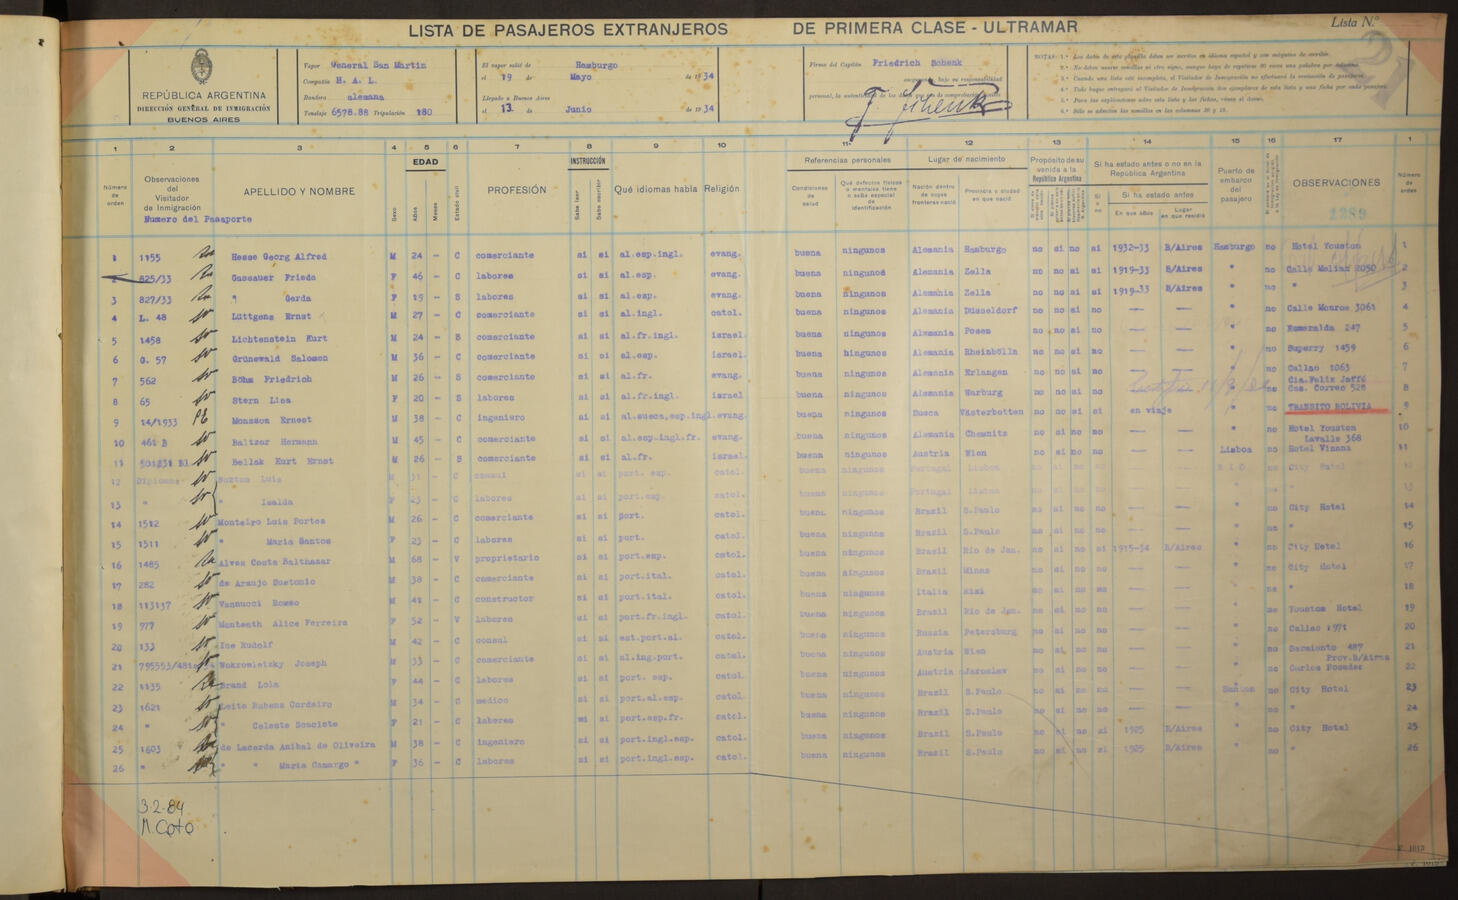 LISTA DE PASAJEROS EXTRANJEROS DE PRIMERA CLASE - ULTRAMAR
Lista N.º
21
REPÚBLICA ARGENTINA
DIRECCIÓN GENERAL DE INMIGRACIÓN
BUENOS AIRES
Vapor General San Martin
Compañía H. A. L.
Bandera alemana
Tonelaje 6578.88 Tripulación 180
El vapor salió de Hamburgo
el 19 de Mayo de 1934
Llegado a Buenos Aires
el 13. de Junio de 1934
Firma del Capitán Friedrich Schenk
NOTAS:
1 2 3 4 5 6 7 8 9 10 11 12 13 14 15 16 17 1
Número de orden
Observaciones del Visitador de Inmigración
Numero del Pasaporte
APELLIDO Y NOMBRE
Sexo
EDAD
Años
Meses
Estado civil
PROFESIÓN
INSTRUCCIÓN
Sabe leer
Sabe escribir
Qué idiomas habla
Religión
Referencias personales
Condiciones de salud
Qué defectos físicos o mentales tiene o seña especial de identificación
Lugar de nacimiento
Nación dentro de cuyas fronteras nació
Provincia o ciudad en que nació
Propósito de su venida a la República Argentina
Si ha estado antes o no en la República Argentina
Si o no
Si ha estado antes
En que años
Lugar en que residió
Puerto de embarco del pasajero
OBSERVACIONES
2289
Número de orden
1 1155 Hesse Georg Alfred M 24 - C comerciante si si al.esp.ingl. evang. buena ningunos Alemania Hamburgo no si no si 1932-33 B/Aires Hamburgo no Hotel Youston 1
2 825/33 Gassauer Frieda F 46 - C labores si si al.esp. evang. buena ningunos Alemania Zella no no si si 1919-33 B/Aires " no Calle Molian 2050 2
3 827/33 " Gerda F 19 - S labores si si al.esp. evang. buena ningunos Alemania Zella no no si si 1919-33 B/Aires " no " 3
4 L. 48 Lüttgens Ernst M 27 - C comerciante si si al.ingl. catol. buena ningunos Alemania Düsseldorf no no si no — — " no Calle Monroe 3061 4
5 1458 Lichtenstein Kurt M 24 - S comerciante si si al.fr.ingl. israel. buena ningunos Alemania Posen no no si no — — " no Esmeralda 247 5
6 G. 57 Grünewald Salomon M 36 - C comerciante si si al.esp. israel. buena ningunos Alemania Rheinbölln no no si no — — " no Superry 1459 6
7 562 Böhm Friedrich M 26 - S comerciante si si al.fr. evang. buena ningunos Alemania Erlangen no no si no — — " no Callao 1063 7
8 65 Stern Lisa F 20 - S labores si si al.fr.ingl. israel. buena ningunos Alemania Warburg no no si no " no Cia.Felix Jaffé Cas. Correo 528 8
9 14/1933 Monsson Ernest M 38 - C ingeniero si si al.sueca,esp.ingl. evang. buena ningunos Sueca Västerbotten no no si si en viaje " no TRANSITO BOLIVIA 9
10 461 B Baltzer Hermann M 45 - C comerciante si si al.esp.ingl.fr. evang. buena ningunos Alemania Chemnitz no si no no — — " no Hotel Youston Lavalle 368 10
11 501231 Bellak Kurt Ernst M 26 - S comerciante si si al.fr. israel. buena ningunos Austria Wien no si no no — — Lisboa no Hotel Vinana 11
12 Luis M 31 - C consul si si port. esp. catol. buena ningunos Portugal Lisboa no City Hotel 12
13 " " F 23 - C labores si si port.esp. catol. buena ningunos Portugal Lisboa 13
14 1512 Monteiro Luis Portes M 26 - C comerciante si si port. catol. buena ningunos Brazil S.Paulo — — " no City Hotel 14
15 1511 " Maria Santos F 23 - C labores si si port. catol. buena ningunos Brazil S.Paulo — — " no " 15
16 1485 Alves Costa Balthazar M 68 - V proprietario si si port.esp. catol. buena ningunos Brasil Rio de Jan. no si no si 1915-34 B/Aires " no City Hotel 16
17 282 de Araujo Suetonio M 38 - C comerciante si si port.ital. catol. buena ningunos Brazil Minas — — " no City Hotel 17
18 113137 Vannucci Romeo M 41 - C constructor si si port.ital. catol. buena ningunos Italia — — " no " 18
19 977 Monteath Alice Ferreira F 52 - V labores si si port.fr.ingl. catol. buena ningunos Brazil Rio de Jan. — — " no Youston Hotel 19
20 133 Ine Rudolf M 42 - C consul si si est.port.al. catol. buena ningunos Russia Petersburg — — " no Callao 1971 20
21 Wokrowietzky Joseph M 33 - C comerciante si si al.ing.port. catol. buena ningunos Austria Wien — — " no Sarmiento 487 Prov.B/Aires 21
22 1135 Brand Lola F 44 - C labores si si port. esp. catol. buena ningunos Austria Jaroslav — — " no Carlos Posadas 22
23 1621 Leite Rubens Cordeiro M 34 - C medico si si port.al.esp. catol. buena ningunos Brazil S.Paulo — — Santos no City Hotel 23
24 " " Celeste F 21 - C labores si si port.esp.fr. catol. buena ningunos Brazil S.Paulo — — " no " 24
25 1603 de Lacerda Anibal de Oliveira M 38 - C ingeniero si si port.ingl.esp. catol. buena ningunos Brazil S.Paulo no si no si 1925 B/Aires " no City Hotel 25
26 " " " Maria Camargo " F 36 - C labores si si port.ingl.esp. catol. buena ningunos Brazil S.Paulo no si no si 1925 B/Aires " no " 26
3-2-84
M. Coto
F. 1013